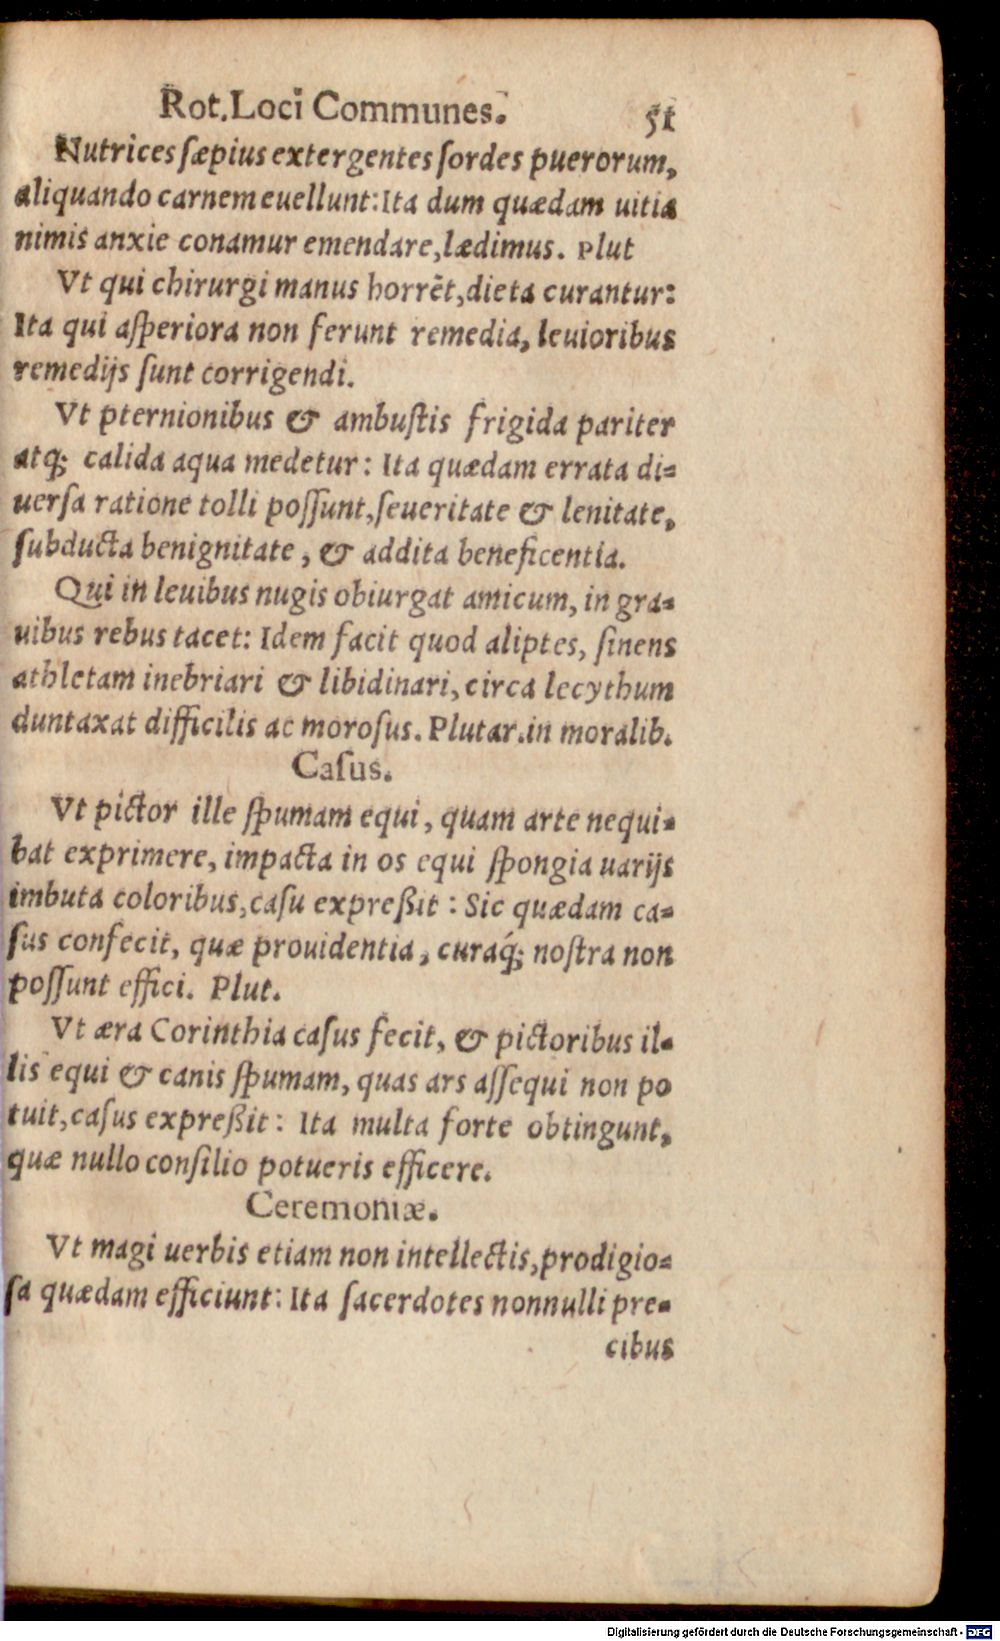 Rot. Loci Communes. 51
Nutrices sæpius extergentes sordes puerorum,
aliquando carnem euellunt: Ita dum quædam uitia
nimis anxie conamur emendare, lædimus. Plut
Vt qui chirurgi manus horrēt, dieta curantur:
Ita qui asperiora non ferunt remedia, leuioribus
remedijs sunt corrigendi.
Vt pternionibus & ambustis frigida pariter
atq; calida aqua medetur: Ita quædam errata di-
uersa ratione tolli possunt, seueritate & lenitate,
subducta benignitate, & addita beneficentia.
Qui in leuibus nugis obiurgat amicum, in gra-
uibus rebus tacet: Idem facit quod aliptes, sinens
athletam inebriari & libidinari, circa lecythum
duntaxat difficilis ac morosus. Plutar. in moralib.
Casus.
Vt pictor ille spumam equi, quam arte nequi-
bat exprimere, impacta in os equi spongia uarijs
imbuta coloribus, casu expreßit: Sic quædam ca-
sus confecit, quæ prouidentia, curaq́; nostra non
possunt effici. Plut.
Vt æra Corinthia casus fecit, & pictoribus il-
lis equi & canis spumam, quas ars assequi non po
tuit, casus expreßit: Ita multa forte obtingunt,
quæ nullo consilio potueris efficere.
Ceremoniæ.
Vt magi uerbis etiam non intellectis, prodigio-
sa quædam efficiunt: Ita sacerdotes nonnulli pre-
cibus
Digitalisierung gefördert durch die Deutsche Forschungsgemeinschaft - DFG